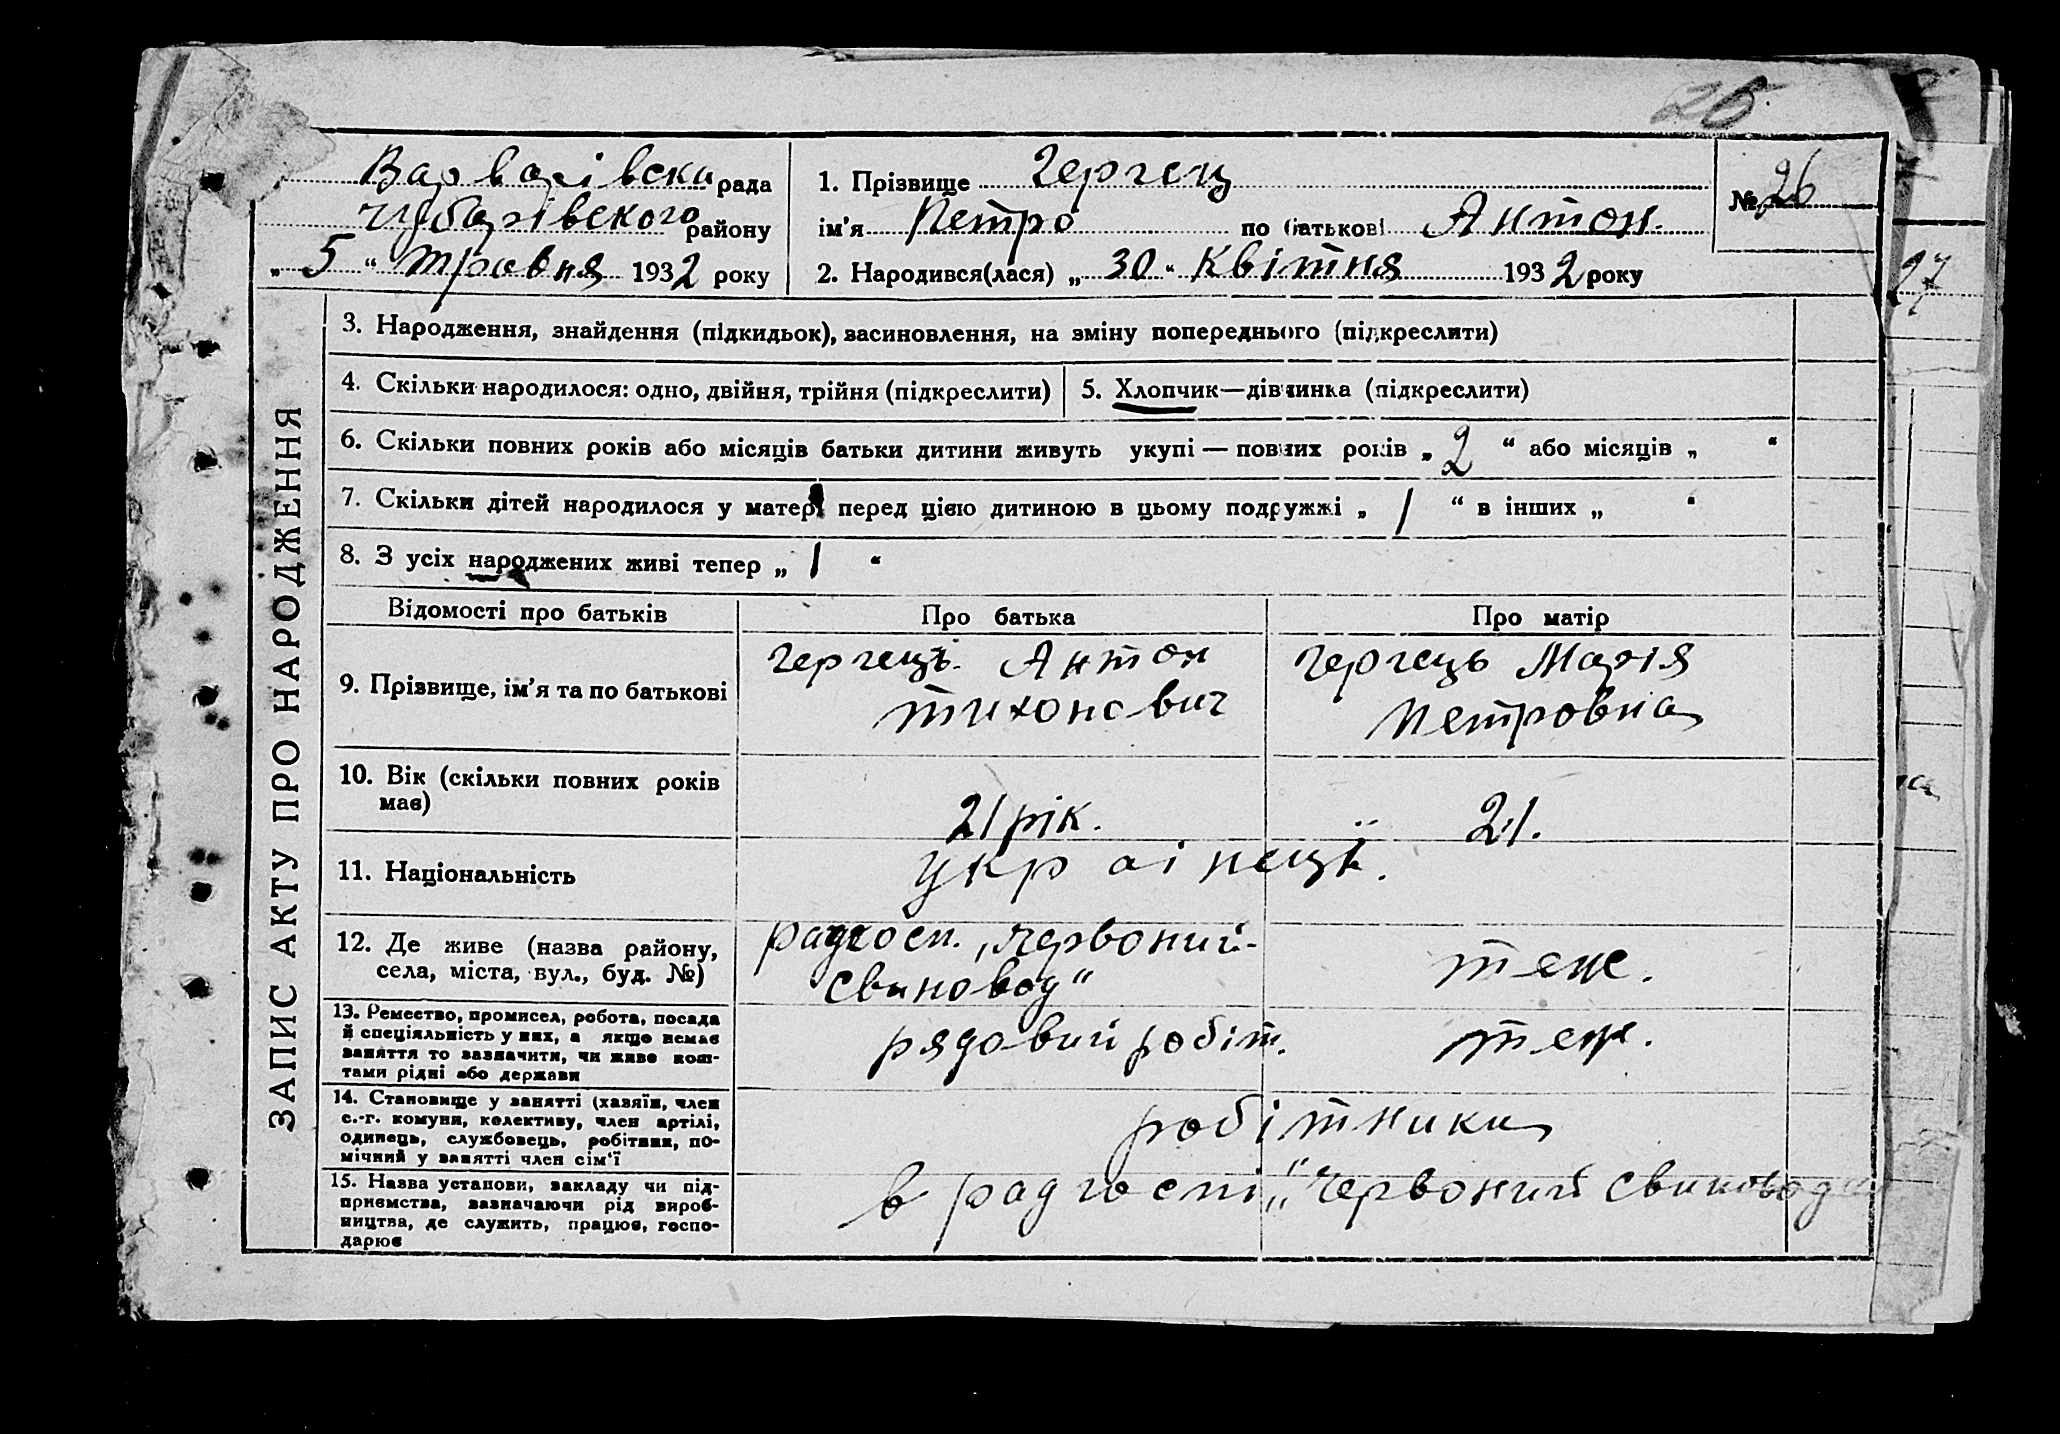 26
Варварівська рада
Чубарівського району
„ 5 “ травня 1932 року
1. Прізвище Чергец
ім'я Петро по батькові Антон.
2. Народився(лася) „ 30 “ Квітня 1932 року
№ 26
27
ЗАПИС АКТУ ПРО НАРОДЖЕННЯ
3. Народження, знайдення (підкидьок), засиновлення, на зміну попереднього (підкреслити)
4. Скільки народилося: одно, двійня, трійня (підкреслити)
5. Хлопчик—дівчинка (підкреслити)
6. Скільки повних років або місяців батьки дитини живуть укупі — повних років „ 2 “ або місяців „ “
7. Скільки дітей народилося у матері перед цією дитиною в цьому подружжі „ 1 “ в інших „ “
8. З усіх народжених живі тепер „ 1 “
Відомості про батьків
Про батька
Про матір
9. Прізвище, ім'я та по батькові
Чергець Антон
Тихонович
Чергець Марія
Петровна
10. Вік (скільки повних років
має)
21 рік.
21.
11. Національність
українці.
12. Де живе (назва району,
села, міста, вул., буд. №)
радгосп. „Червоний
Свиновод“
теж.
13. Ремество, промисел, робота, посада
й спеціяльність у них, а якщо немає
заняття то зазначити, чи живе кош-
тами рідні або держави
рядовий робіт.
теж.
14. Становище у занятті (хазяїн, член
с.-г. комуни, колективу, член артілі,
одинець, службовець, робітник, по-
мічний у занятті член сім'ї
робітники
15. Назва установи, закладу чи під-
приємства, зазначаючи рід вироб-
ництва, де служить, працює, госпо-
дарює
в радгоспі „Червоний Свиновод“